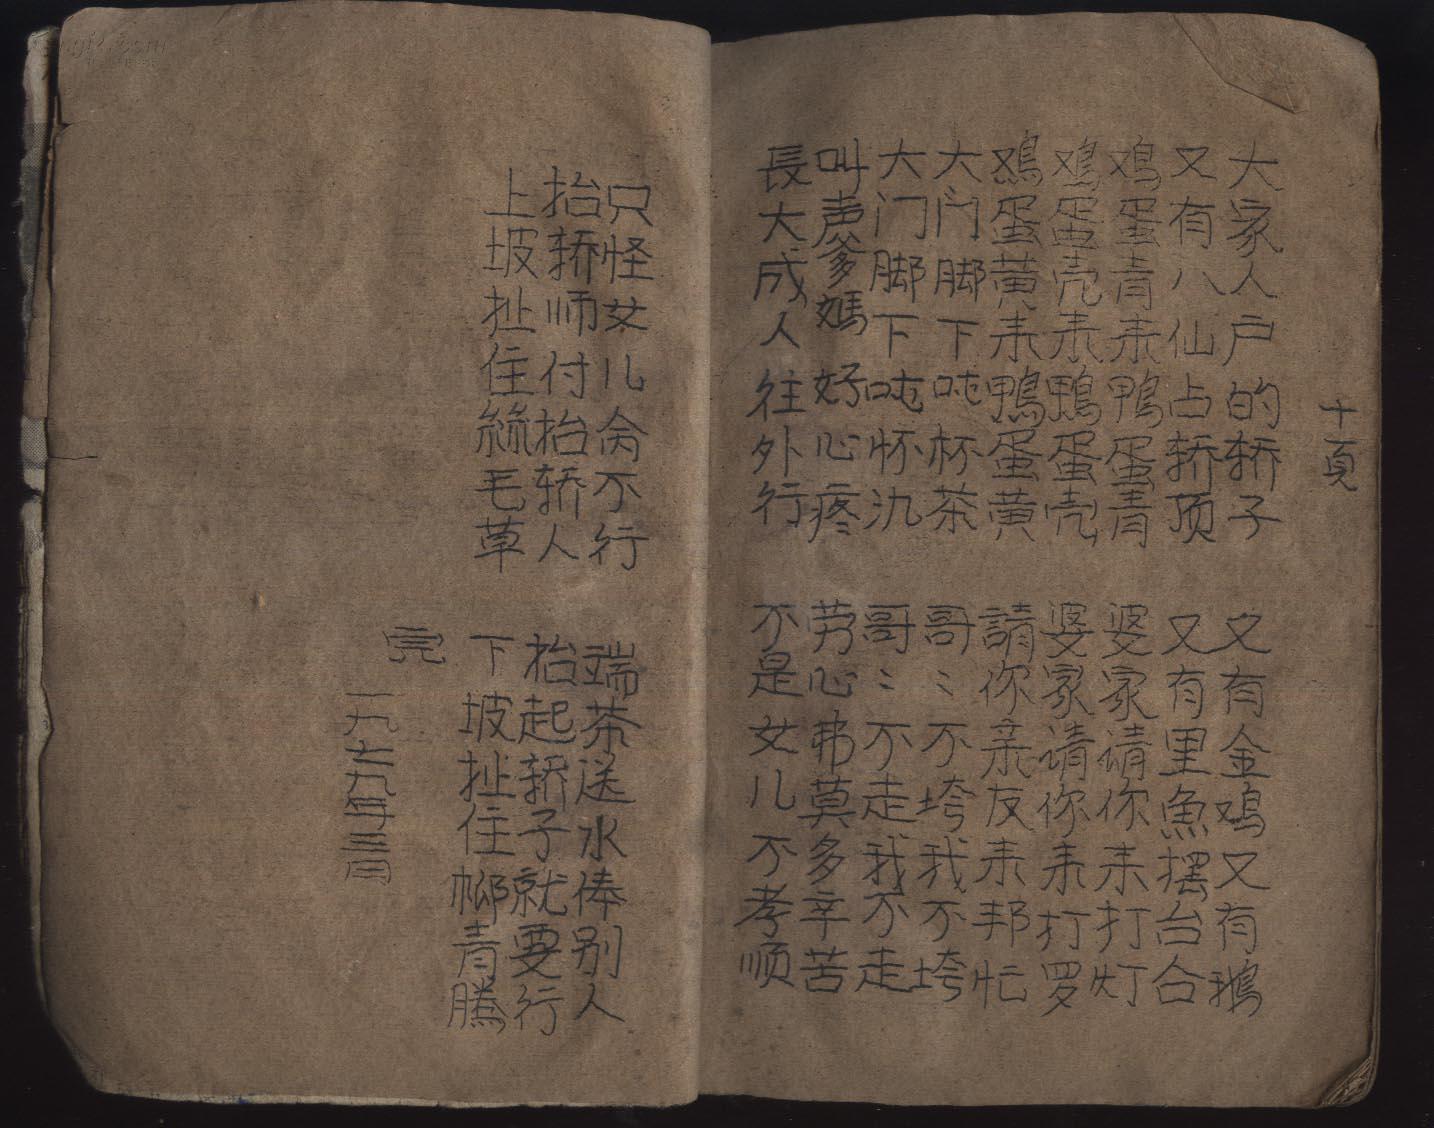 十頁
大家人户的轿子 又有金鸡又有鵝
又有八仙占轿顶 又有里魚摆台合
鸡蛋青来鴨蛋青 婆家请你来打灯
鸡蛋壳来鴨蛋壳 婆家请你来打罗
鸡蛋黄来鴨蛋黄 請你亲友来邦忙
大门脚下吨杯茶 哥〻不垮我不垮
大门脚下吨怀氿 哥〻不走我不走
叫声爹媽好心疼 劳心弗莫多辛苦
長大成人往外行 不是女儿不孝顺
只怪女儿肏不行 端茶送水俸别人
抬轿师付抬轿人 抬起轿子就要行
上坡扯住絲毛草 下坡扯住柳青腾
完
一九七九年三月